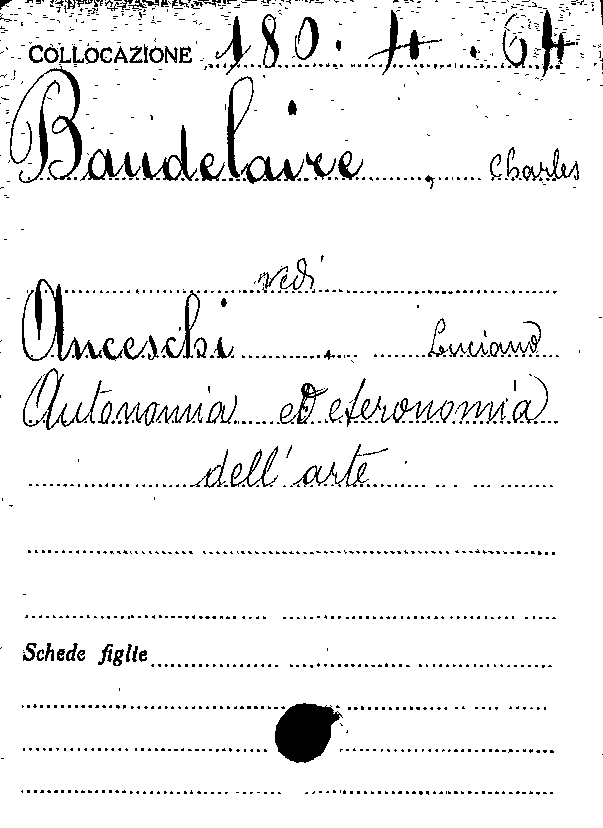 COLLOCAZIONE 180. H. 64
Baudelaire, Charles
vedi
Anceschi, Luciano
Autonomia ed eteronomia
dell'arte
Schede figlie